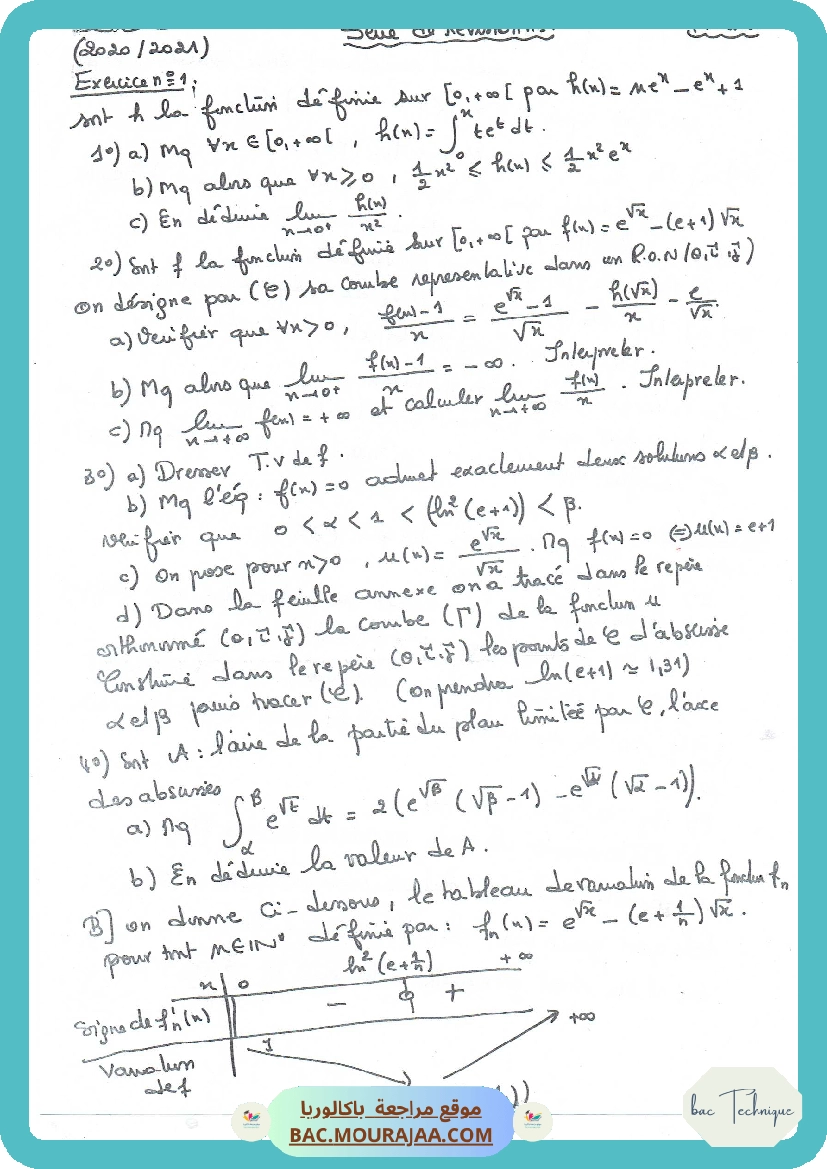 (2020/2021)
Série de Révision
Exercice n°1:
soit h la fonction définie sur [0,+∞[ par h(x) = xe^x - e^x + 1
1°) a) Mq ∀x ∈ [0,+∞[ , h(x) = ∫_0^x te^t dt.
b) Mq alors que ∀x ≥ 0 , 1/2 x² ≤ h(x) ≤ 1/2 x² e^x
c) En déduire lim_{x→0+} h(x)/x² .
2°) Soit f la fonction définie sur [0,+∞[ par f(x) = e^√x - (e+1)√x
on désigne par (C) sa courbe représentative dans un R.O.N (O,i,j)
a) Vérifier que ∀x>0 , (f(x)-1)/x = (e^√x - 1)/√x - h(√x)/x - e/√x.
b) Mq alors que lim_{x→0+} (f(x)-1)/x = -∞ . Interpreter .
c) Mq lim_{x→+∞} f(x) = +∞ et calculer lim_{x→+∞} f(x)/x . Interpreter.
3°) a) Dresser T.V de f .
b) Mq l'éq : f(x)=0 admet exactement deux solutions α et β .
vérifier que 0 < α < 1 < (ln²(e+1)) < β.
c) On pose pour x>0 , u(x) = e^√x/√x . Mq f(x)=0 ⇔ u(x) = e+1
d) Dans la feuille annexe on a tracé dans le repère
orthonormé (O,i,j) la courbe (Γ) de la fonction u
Construire dans le repère (O,i,j) les points de C d'abscisse
α et β puis tracer (C). (on prendra ln(e+1) ≃ 1,31)
4°) Soit A : l'aire de la partie du plan limitée par C, l'axe
des abscisses
a) Mq ∫_α^β e^√t dt = 2(e^√β (√β - 1) - e^√α (√α - 1)).
b) En déduire la valeur de A .
B] on donne ci-dessous, le tableau de variation de la fonction f_n
pour tout n∈IN* définie par : f_n(x) = e^√x - (e + 1/n)√x .
x 0 ln²(e+1/n) +∞
Signe de f'_n(x) - 0 +
Variation de f 1 +∞
موقع مراجعة باكالوريا
BAC.MOURAJAA.COM
bac Technique